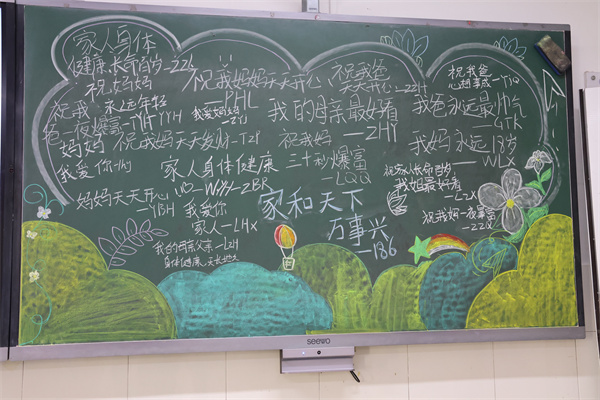 家人身体
健康,长命百岁-ZZL
祝妈妈
永远年轻
-YYH
祝我
爸一夜爆富-YH
妈妈
我爱你-
祝我妈妈天天开心
-HHL
我爱妈妈
-ZYJ
祝我妈天天发财-TZP
祝我爸
天天开心-ZZH
我的母亲最好看
-ZHY
祝我爸
心想事成-YJQ
我爸永远最帅气
-GTK
我妈永远18岁
-WLX
祝我妈
三十秒爆富
-LQQ
家人身体健康
-WHH-ZBR
祝家人长命百岁
我姐最好看
-LZX
祝我妈一夜暴富
-ZZQ
妈妈天天开心
-YBH
我爱你
家人-LHX
我的母亲父亲-LZH
身体健康 天长地久
家和天下
万事兴
-186
seewo